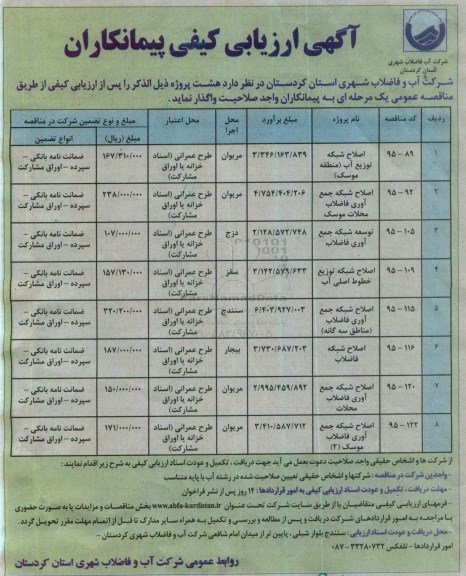 آگهی ارزیابی کیفی پیمانکاران
شرکت آب فاضلاب شهری
استان کردستان
شرکت آب و فاضلاب شهری استان کردستان در نظر دارد هشت پروژه ذیل الذکر را پس از ارزیابی کیفی از طریق
مناقصه عمومی یک مرحله ای به پیمانکاران واجد صلاحیت واگذار نماید.
ردیف کد مناقصه نام پروژه مبلغ برآورد محل اجرا محل اعتبار مبلغ و نوع تضمین شرکت در مناقصه
مبلغ (ریال) انواع تضمین
۱ ۸۹ – ۹۵ اصلاح شبکه توزیع آب (منطقه موسک) ۳/۳۴۶/۱۶۳/۸۳۹ مریوان طرح عمرانی (اسناد خزانه یا اوراق مشارکت) ۱۶۷/۳۱۰/۰۰۰ ضمانت نامه بانکی – سپرده – اوراق مشارکت
۲ ۹۲ – ۹۵ اصلاح شبکه جمع آوری فاضلاب محلات موسک ۴/۷۵۴/۴۰۴/۲۰۶ مریوان طرح عمرانی (اسناد خزانه یا اوراق مشارکت) ۲۳۸/۰۰۰/۰۰۰ ضمانت نامه بانکی – سپرده – اوراق مشارکت
۳ ۱۰۵ – ۹۵ توسعه شبکه جمع آوری فاضلاب ۲/۱۲۸/۵۷۲/۷۴۸ دزج طرح عمرانی (اسناد خزانه یا اوراق مشارکت) ۱۰۷/۰۰۰/۰۰۰ ضمانت نامه بانکی – سپرده – اوراق مشارکت
۴ ۱۰۹ – ۹۵ اصلاح شبکه توزیع خطوط اصلی آب ۳/۱۴۲/۵۷۹/۶۳۳ سقز طرح عمرانی (اسناد خزانه یا اوراق مشارکت) ۱۵۷/۱۳۰/۰۰۰ ضمانت نامه بانکی – سپرده – اوراق مشارکت
۵ ۱۱۵ – ۹۵ اصلاح شبکه جمع آوری فاضلاب (مناطق سه گانه) ۶/۴۰۳/۹۲۷/۰۰۳ سنندج طرح عمرانی (اسناد خزانه یا اوراق مشارکت) ۳۲۰/۲۰۰/۰۰۰ ضمانت نامه بانکی – سپرده – اوراق مشارکت
۶ ۱۱۶ – ۹۵ اصلاح شبکه فاضلاب ۳/۷۳۰/۶۸۷/۲۰۳ بیجار طرح عمرانی (اسناد خزانه یا اوراق مشارکت) ۱۸۷/۰۰۰/۰۰۰ ضمانت نامه بانکی – سپرده – اوراق مشارکت
۷ ۱۲۰ – ۹۵ اصلاح شبکه جمع آوری فاضلاب محلات ۲/۹۹۵/۴۵۹/۸۹۲ مریوان طرح عمرانی (اسناد خزانه یا اوراق مشارکت) ۱۵۰/۰۰۰/۰۰۰ ضمانت نامه بانکی – سپرده – اوراق مشارکت
۸ ۱۲۲ – ۹۵ اصلاح شبکه جمع آوری فاضلاب موسک (۲) ۳/۴۱۰/۵۸۷/۷۱۲ مریوان طرح عمرانی (اسناد خزانه یا اوراق مشارکت) ۱۷۱/۰۰۰/۰۰۰ ضمانت نامه بانکی – سپرده – اوراق مشارکت
از شرکت ها و اشخاص حقیقی واجد صلاحیت دعوت بعمل می آید جهت دریافت ، تکمیل و عودت اسناد ارزیابی کیفی به شرح زیر اقدام نمایند :
– واجدین شرکت در مناقصه : شرکتها و اشخاص حقیقی تعیین صلاحیت شده در رشته آب با پایه متناسب
– مهلت دریافت ، تکمیل و عودت اسناد ارزیابی کیفی به امور قراردادها : ۱۴ روز پس از نشر فراخوان
– فرمهای ارزیابی کیفی متقاضیان یا از طریق سایت شرکت تحت عنوان www.abfa-kurdistan.ir بخش مناقصات و مزایدات یا به صورت حضوری
با مراجعه به امور قراردادهای شرکت دریافت و پس از مطالعه و بررسی و تکمیل به همراه سایر مدارک تا قبل از اتمام مهلت مقرر تحویل گردد .
– محل دریافت و عودت اسناد ارزیابی : سنندج بلوار شبلی ، پایین تر از میدان امام شافعی شرکت آب و فاضلاب شهری کردستان –
امور قراردادها – تلفکس ۳۳۲۸۰۷۳۲ – ۰۸۷
روابط عمومی شرکت آب و فاضلاب شهری استان کردستان